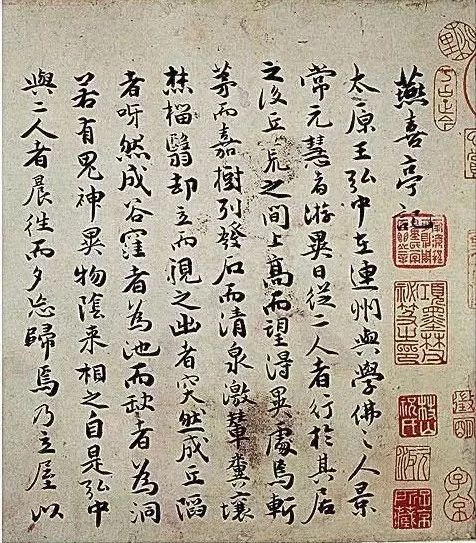 燕喜亭記
太原王弘中在連州與學佛〻人景
常元慧者游異日從二人者行於其居
之後丘荒之間上高而望得異處焉斬
茅而嘉樹列發石而清泉激輦糞壤
焚榴翳却立而視之出者突然成丘陷
者呀然成谷窪者為池而缺者為洞
若有鬼神異物陰来相之自是弘中
與二人者晨往而夕忘歸焉乃立屋以
項墨林
祕笈之印
子京